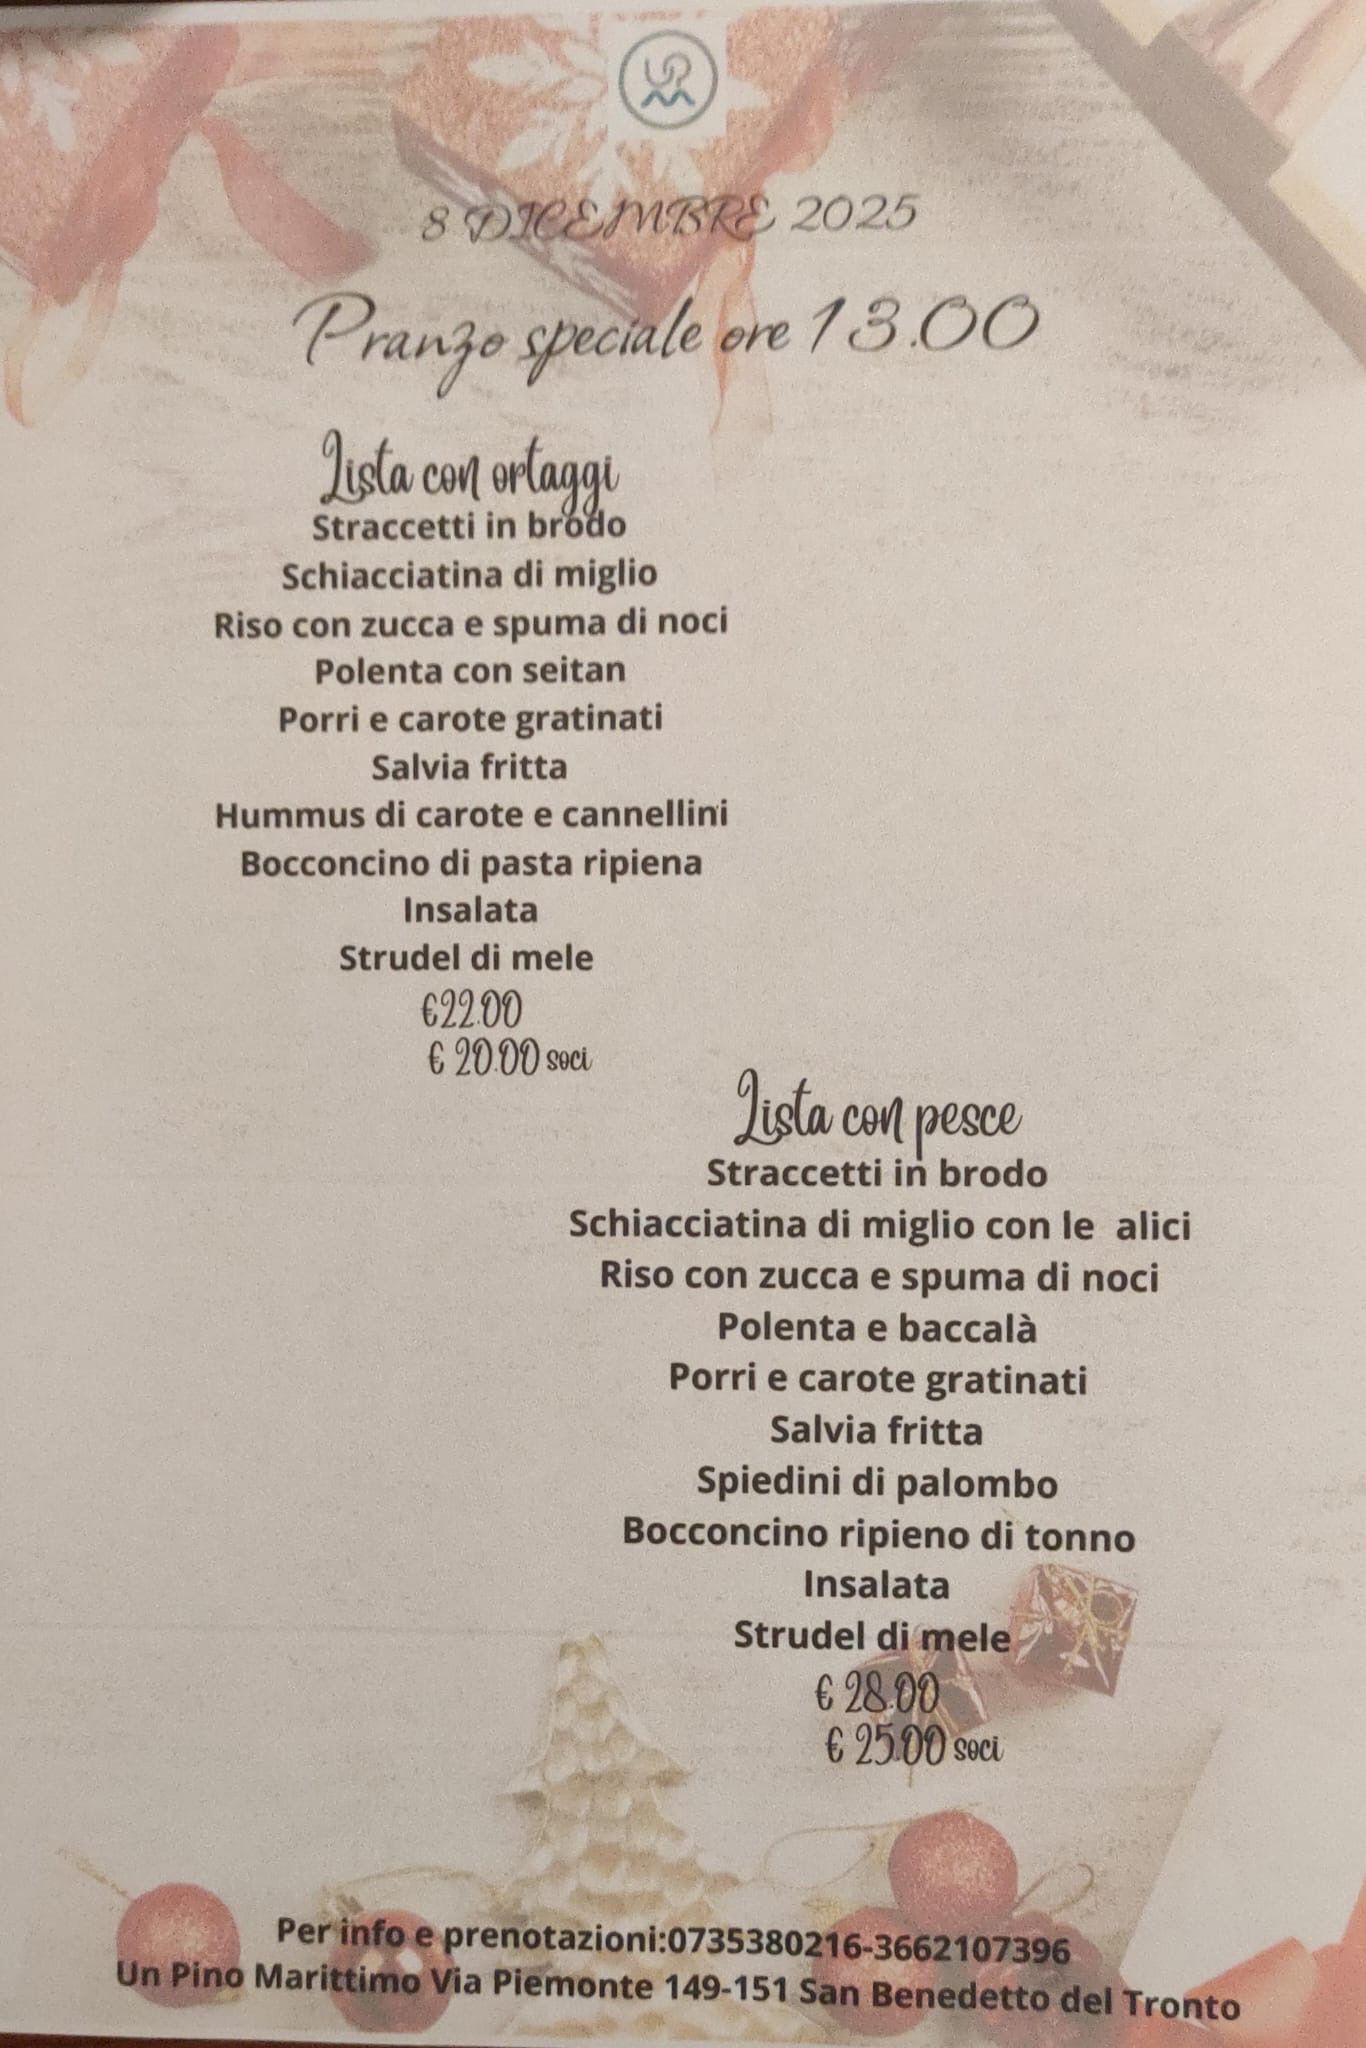 8 DICEMBRE 2025
Pranzo speciale ore 13.00
Lista con ortaggi
Straccetti in brodo
Schiacciatina di miglio
Riso con zucca e spuma di noci
Polenta con seitan
Porri e carote gratinati
Salvia fritta
Hummus di carote e cannellini
Bocconcino di pasta ripiena
Insalata
Strudel di mele
€22.00
€ 20.00 soci
Lista con pesce
Straccetti in brodo
Schiacciatina di miglio con le alici
Riso con zucca e spuma di noci
Polenta e baccalà
Porri e carote gratinati
Salvia fritta
Spiedini di palombo
Bocconcino ripieno di tonno
Insalata
Strudel di mele
€ 28.00
€ 25.00 soci
Per info e prenotazioni:0735380216-3662107396
Un Pino Marittimo Via Piemonte 149-151 San Benedetto del Tronto